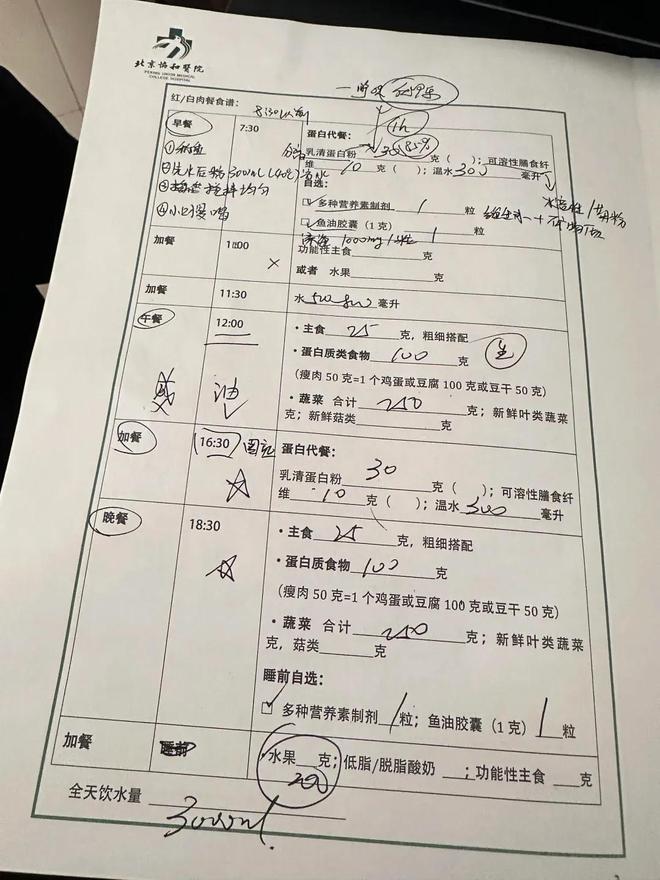 北京协和医院
PEKING UNION MEDICAL
COLLEGE HOSPITAL
红/白肉餐食谱：
8:30以前
1h
早餐
7:30
蛋白代餐：
乳清蛋白粉 30 85% 克（ ）；可溶性膳食纤
维 10 克（ ）；温水 300 毫升
②先水后粉300ml(40℃)温水
④小口慢喝
自选：
☑多种营养素制剂 1 粒
☑鱼油胶囊（1 克） 1 粒
1000mg/粒
加餐
功能性主食 克
× 或者 水果 克
加餐
11:30
水 500-800 毫升
午餐
12:00
·主食 25 克，粗细搭配
·蛋白质类食物 100 克 生
（瘦肉 50 克=1 个鸡蛋或豆腐 100 克或豆干 50 克）
油
·蔬菜 合计 250 克；新鲜叶类蔬菜
克；新鲜菇类 克
加餐
16:30
蛋白代餐：
乳清蛋白粉 30 克（ ）；可溶性膳食纤
维 10 克（ ）；温水 300 毫升
晚餐
18:30
·主食 25 克，粗细搭配
·蛋白质食物 100 克
（瘦肉 50 克=1 个鸡蛋或豆腐 100 克或豆干 50 克）
·蔬菜 合计 250 克；新鲜叶类蔬菜
克，菇类 克
睡前自选：
☑多种营养素制剂 1 粒；鱼油胶囊（1 克） 1 粒
加餐
睡前
·水果 200 克；低脂/脱脂酸奶 ；功能性主食 克
全天饮水量 3000ml